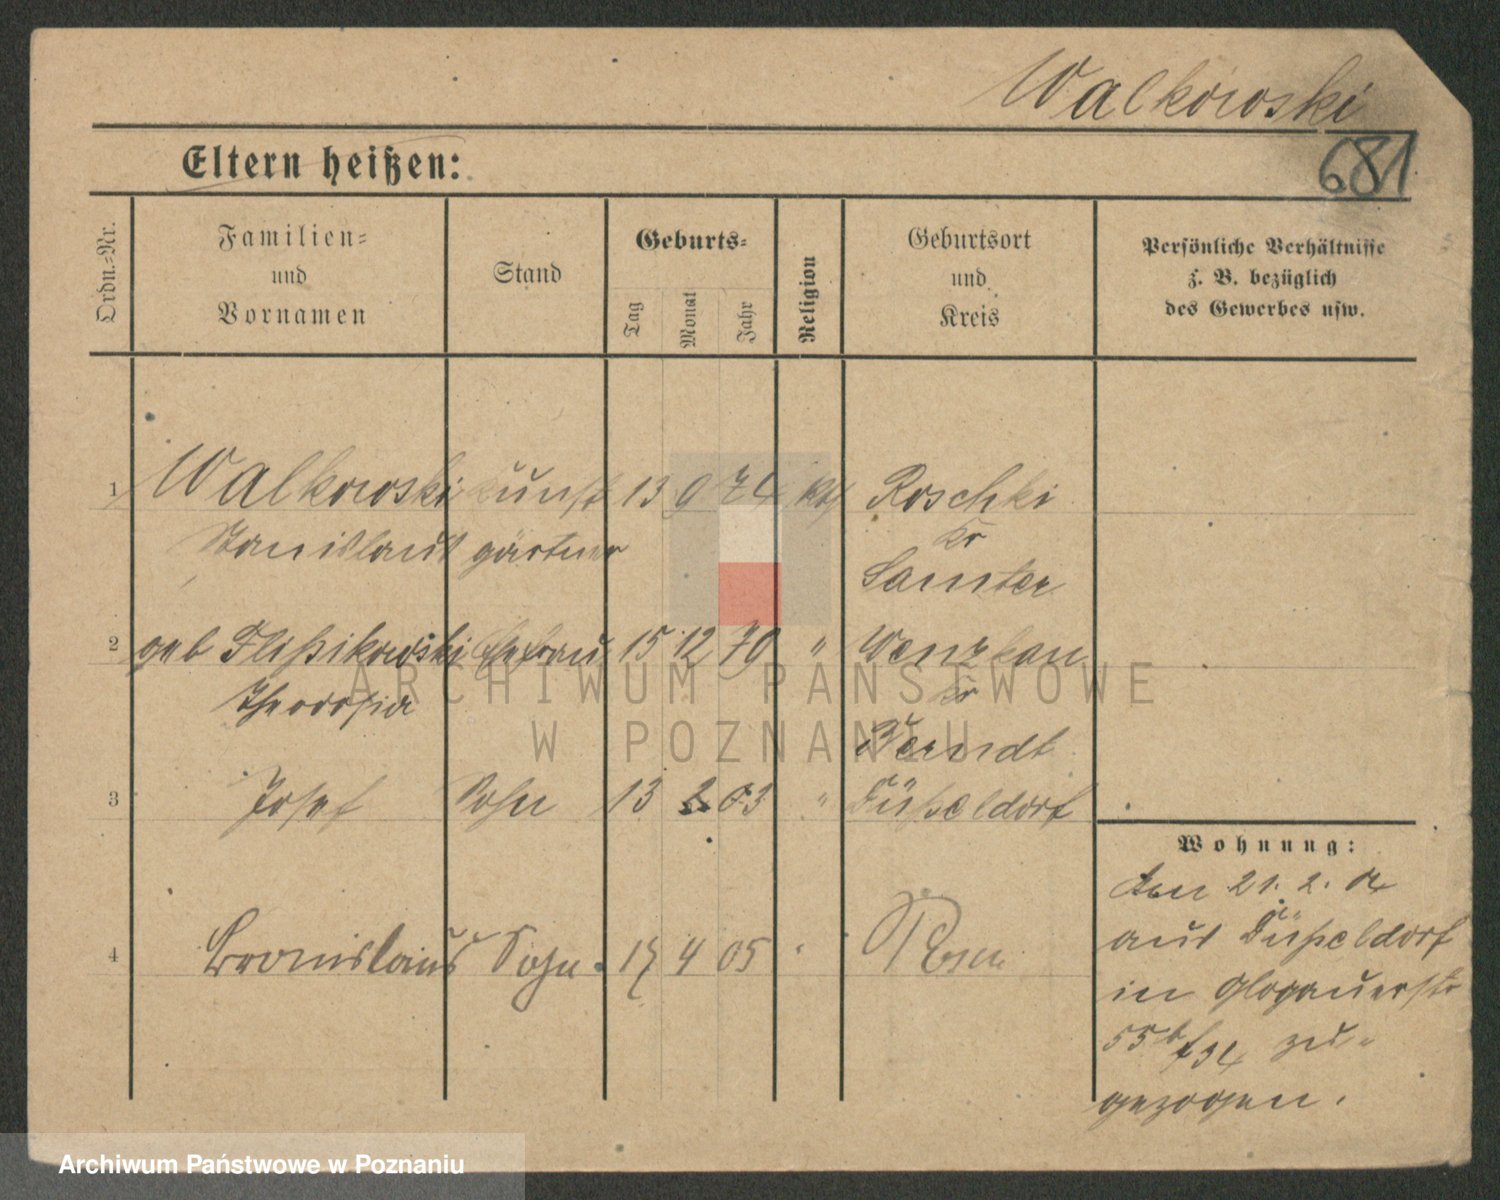 Walkowski
681
Eltern heißen:
Ordn.-Nr.
Familien- und Vornamen
Stand
Geburts-
Tag
Monat
Jahr
Religion
Geburtsort und Kreis
Persönliche Verhältnisse
z. B. bezüglich
des Gewerbes usw.
1 Walkowski Kunst 13 9 74 kth Roschki
Stanislaus gärtner Kr
Samter
2 geb Ehefrau 15 12 79 "
Theodosia Kr
3 Josef Sohn 13 2 03 " Düsseldorf
Wohnung:
den 21. 2. 04
aus Düsseldorf
in Glogauerstr
zu-
gezogen.
4 Bronislaus Sohn 17 4 05 Posen
ARCHIWUM PAŃSTWOWE
W POZNANIU
Archiwum Państwowe w Poznaniu